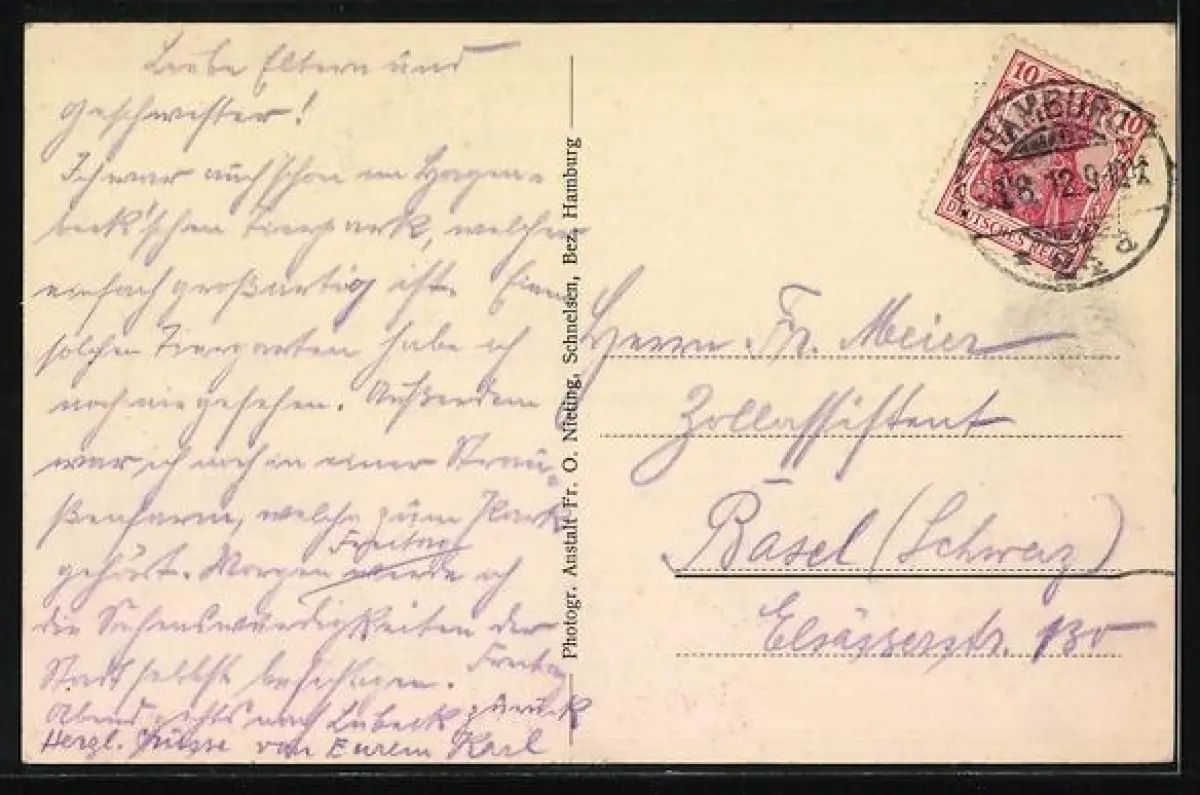 Liebe Eltern und
Geschwister!
Ich war auch schon im Hagen-
beck'schen Tierpark, welcher
einfach großartig ist. Einen
solchen Tiergarten habe ich
noch nie gesehen. Außerdem
war ich noch in einer Strau-
ßenfarm, welche zum Park
gehört. Morgen Freitag werde ich
die Sehenswürdigkeiten der
Stadt selbst besichtigen. Freitag
Abend gehts nach Lübeck zurück
Herzl. Grüsse von Eurem Karl
Photogr. Anstalt Fr. O. Nieting, Schnelsen, Bez. Hamburg
10 10
DEUTSCHES REICH
HAMBURG
12.9
Herrn Fr. Meier
Zollassistent
Basel (Schweiz)
Elsässerstr. 130